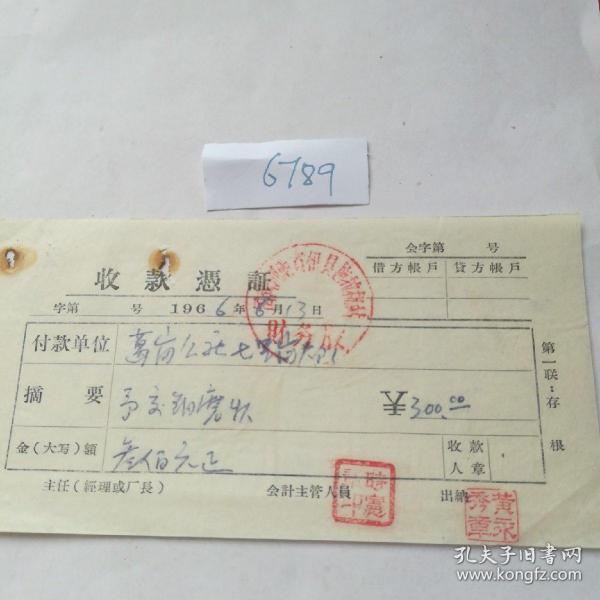 6789
会字第 号
收款憑証
借方帳戶 貸方帳戶
字第 号 1966年8月13日
财务
付款单位 萬 公社七
第一联：存根
摘要 予交 磨 300.00
金(大写)額 叁佰元正
收款人章
主任(經理或厂長) 会計主管人員 出納
黄永秀章
孔夫子旧书网
www.kongfz.com